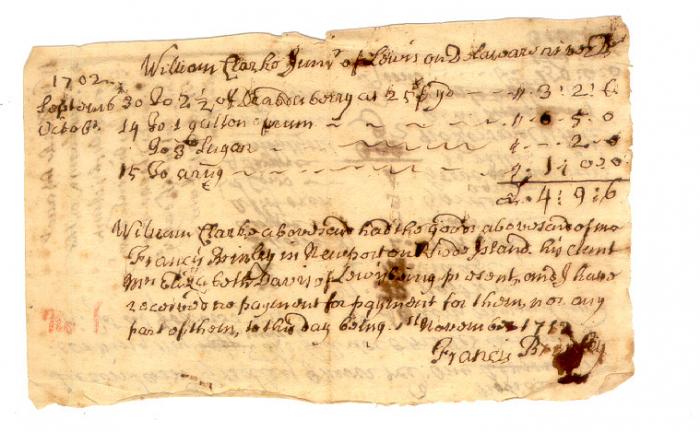 William Clarke Junr of Lewis on Delaware river Dr
1702
Septemb 30 To 2 1/2 of at 25 p yd 3 : 2 : 6
Octobr 14 To 1 gallon rum 0 : 5 : 0
To 3 Sugar 2 : 0
15 To a rugg 1 : 0 : 0
4 : 9 : 6
William Clarke abovesaid had the goods abovesaid of me
Francis Brinley in Newport on Rhode Island. his Aunt
Mrs Elizabeth Davis of Lewis being present, and I have
received no payment for payment for them, nor any
part of them, to this day being 1st November 1712
Francis Brinley
No. 1.